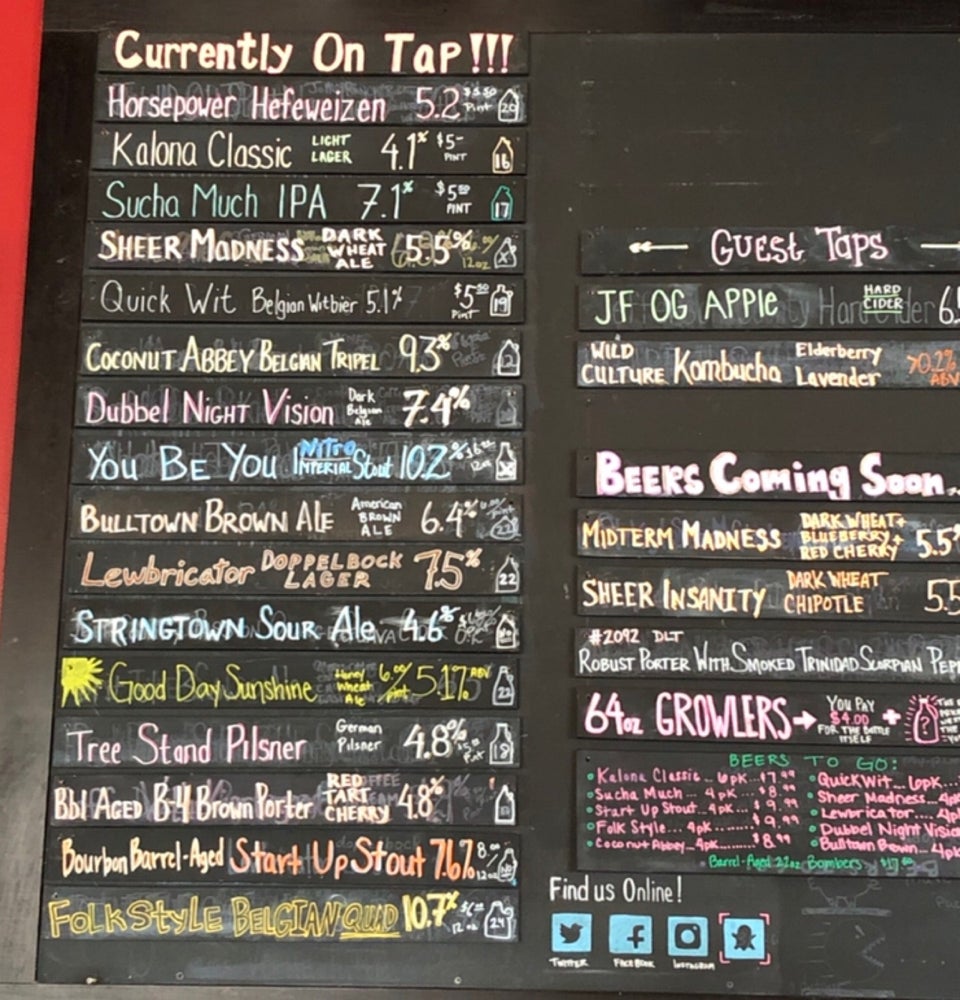 Currently On Tap!!!
Horsepower Hefeweizen 5.2 Pint 20
Kalona Classic LIGHT LAGER 4.1% $5- PINT 16
Sucha Much IPA 7.1% $5.00 PINT 17
SHEER MADNESS DARK WHEAT ALE 5.5% 12oz X
Quick Wit Belgian Witbier 5.1% $5.50 Pint 19
COCONUT ABBEY BELGIAN TRIPEL 9.3%
Dubbel NIGHT VISION Dark Belgian Ale 7.4%
YOU BE YOU NITRO IMPERIAL Stout 10.2%
BULLTOWN BROWN ALE American BROWN ALE 6.4%
Lewbricator DOPPELBOCK LAGER 7.5% 22
STRINGTOWN SOUR Ale 4.6%
Good Day Sunshine Honey Wheat Ale Pint 5.17% ABV 22
Tree Stand Pilsner German Pilsner 4.8% 18
Bbl AGED B-4 BROWN PORTER RED TART CHERRY 4.8%
Bourbon Barrel-Aged Start Up Stout 7.67% 12oz
FOLK STYLE BELGIAN QUAD 10.7% 12 oz 24
GUEST TAPS
JF OG APPLE HARD CIDER
WILD CULTURE Kombucha Elderberry Lavender >0.2% ABV
BEERS Coming Soon
MIDTERM MADNESS DARK WHEAT + BLUEBERRY + RED CHERRY 5.5%
SHEER INSANITY DARK WHEAT CHIPOTLE 5.5
#2092 DLT
ROBUST PORTER WITH SMOKED TRINIDAD SCORPIAN PEPP
64oz GROWLERS → YOU PAY $4.00 FOR THE BOTTLE ITSELF + ?
BEERS TO GO:
Kalona Classic.. 6pk..$7.99
Sucha Much... 4pk...$8.99
Start Up Stout.. 4pk...$9.99
Folk Style... 4pk........$9.99
Coconut Abbey..4pk.......$8.99
Quick Wit.. 6pk..
Sheer Madness...4pk
Lewbricator....4pk
Dubbel Night Vision
Bulltown Brown..4pk
Barrel-Aged 22oz Bombers
Find us Online!
TWITTER FACEBOOK INSTAGRAM